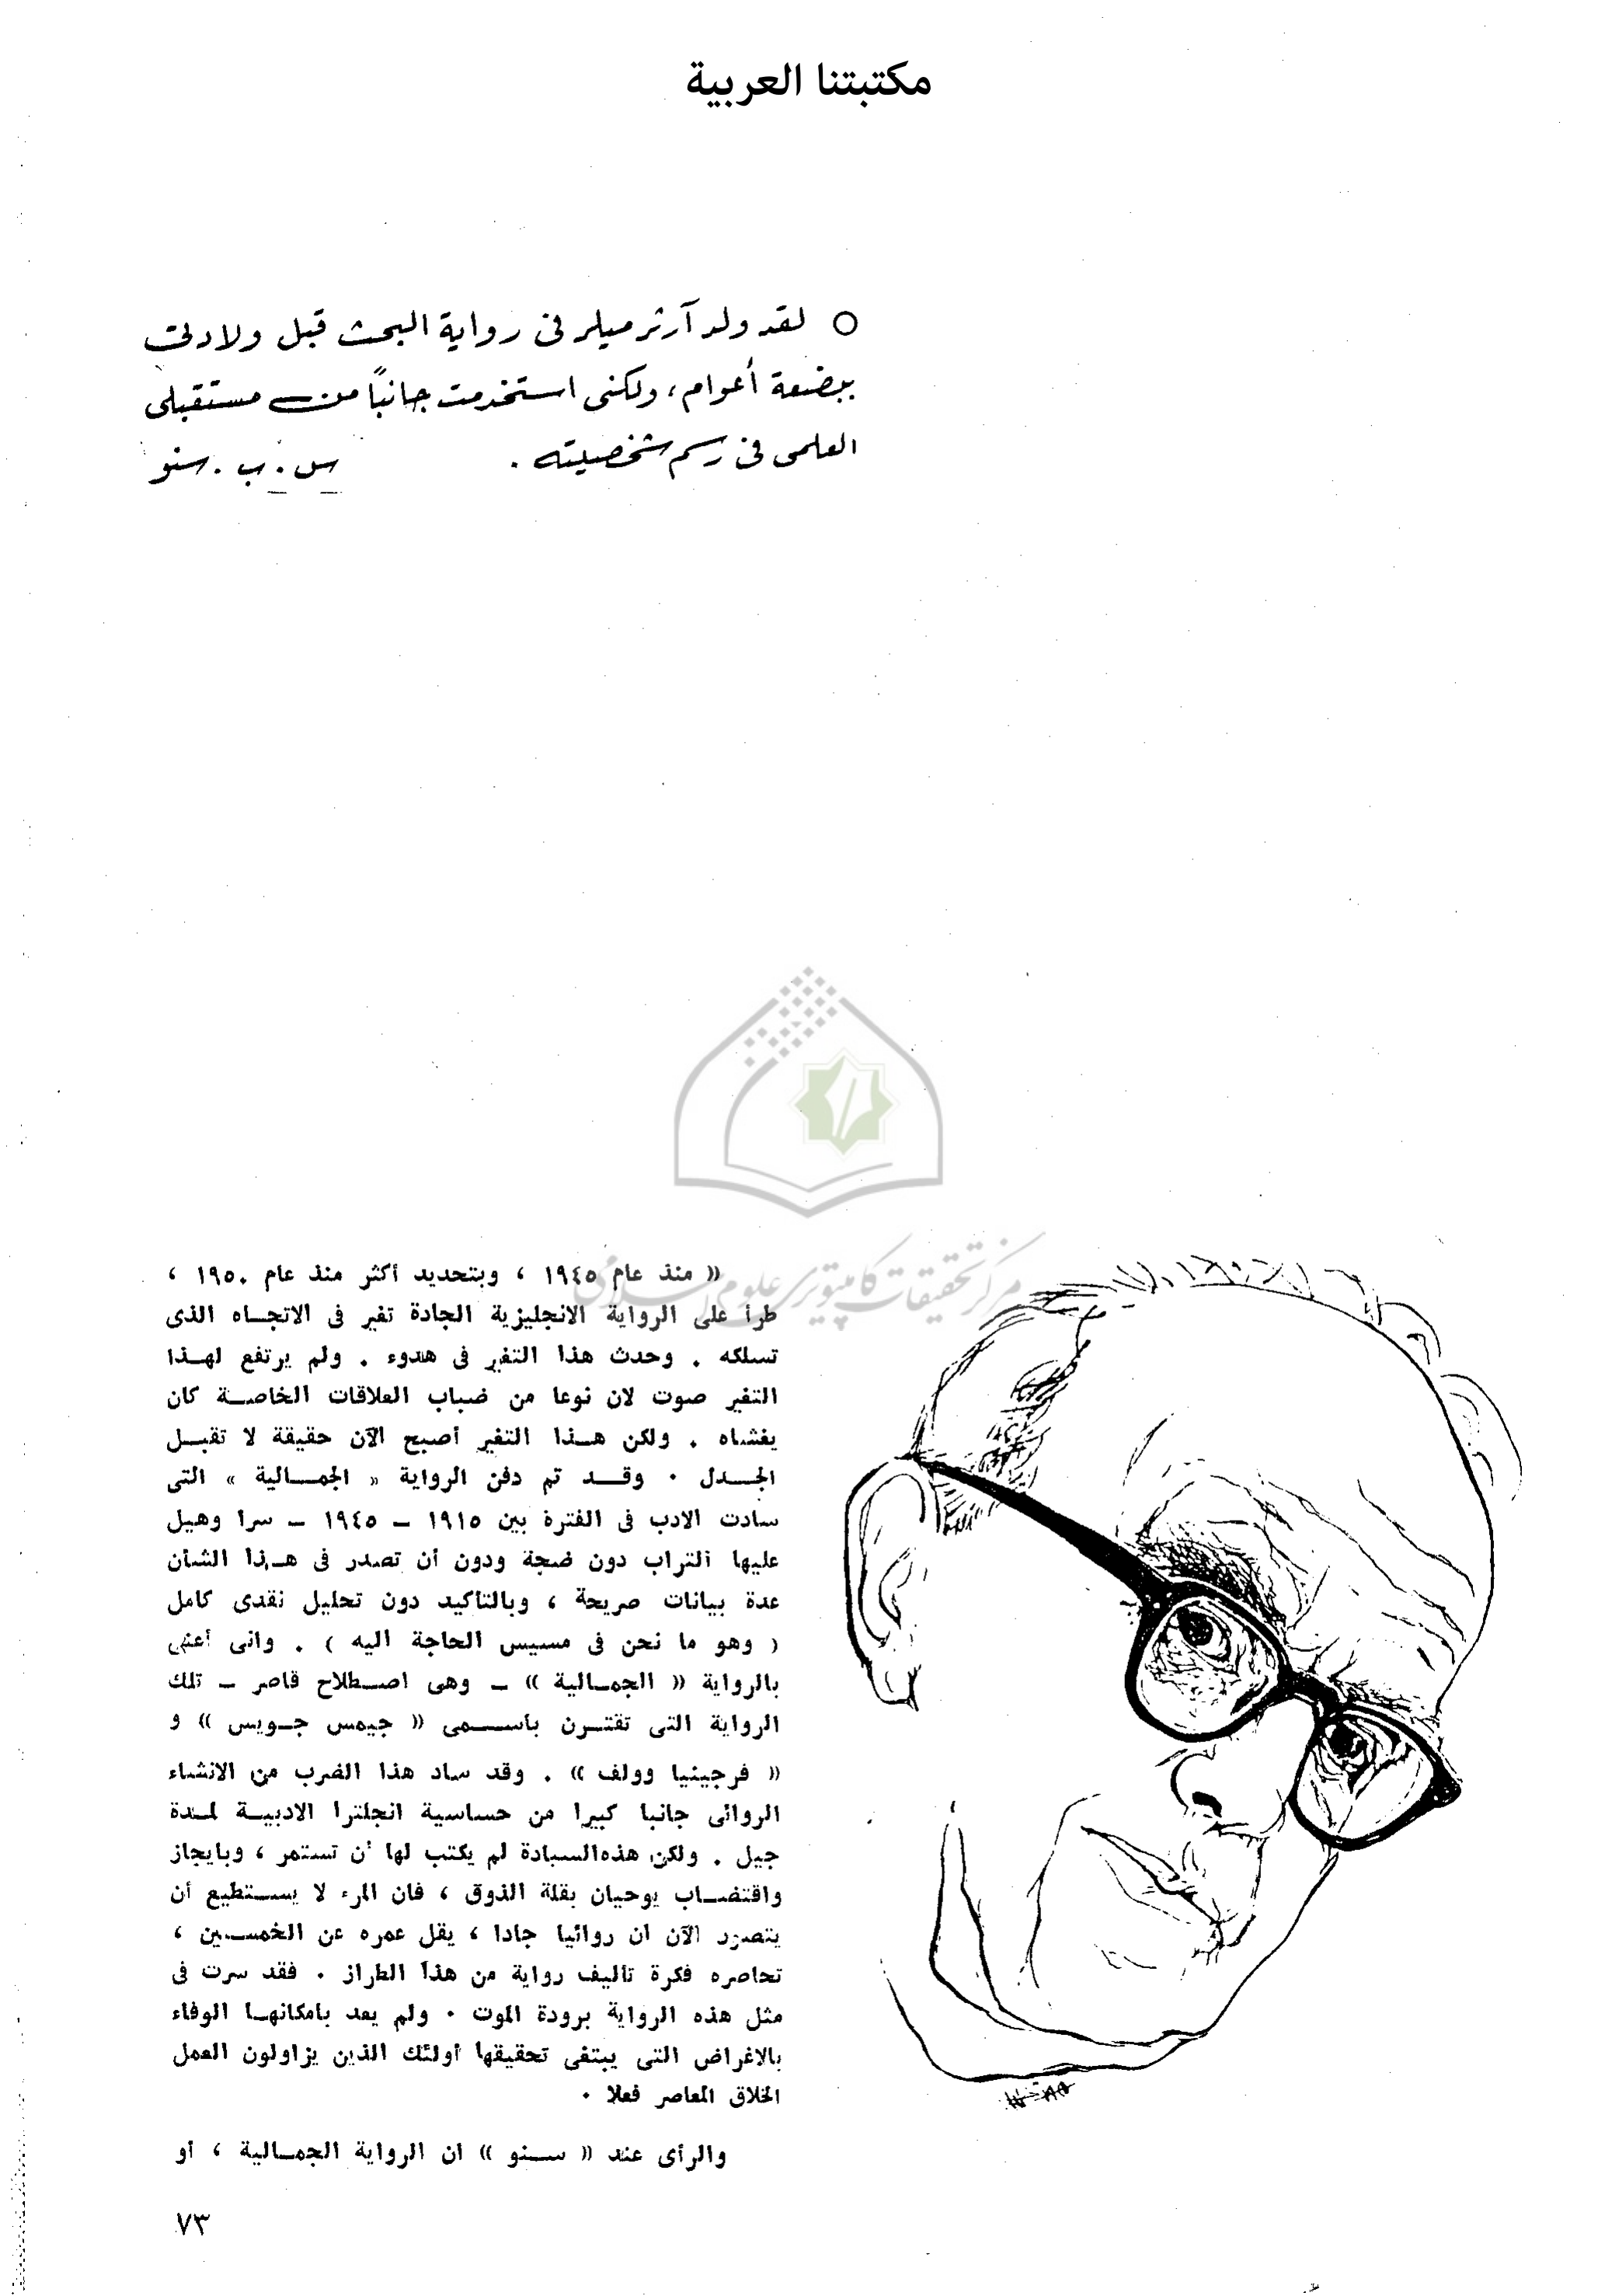 مكتبتنا العربية
○ لقد ولد آرثر ميلر فى رواية البحث قبل ولادتى
ببضعة أعوام، ولكنى استخدمت جانباً من مستقبلى
العلمى فى رسم شخصيته .
س . ب . سنو
مركز تحقيقات كامپيوترى علوم اسلامى
(( منذ عام ١٩٤٥ ، وبتحديد أكثر منذ عام ١٩٥٠ ،
طرأ على الرواية الانجليزية الجادة تغير فى الاتجـاه الذى
تسلكه . وحدث هذا التغير فى هدوء . ولم يرتفع لهـذا
التغير صوت لان نوعا من ضباب العلاقات الخاصـة كان
يغشاه . ولكن هـذا التغير أصبح الآن حقيقة لا تقبـل
الجـدل . وقـد تم دفن الرواية « الجمـالية » التى
سادت الادب فى الفترة بين ١٩١٥ ـ ١٩٤٥ ـ سرا وهيل
عليها التراب دون ضجة ودون أن تصدر فى هـذا الشأن
عدة بيانات صريحة ، وبالتاكيد دون تحليل نقدى كامل
( وهو ما نحن فى مسيس الحاجة اليه ) . وانى أعنى
بالرواية (( الجمـالية )) ـ وهى اصـطلاح قاصر ـ تلك
الرواية التى تقتـرن بأسـمى (( جيمس جـويس )) و
(( فرجينيا وولف )) . وقد ساد هذا الضرب من الانشاء
الروائى جانبا كبيرا من حساسية انجلترا الادبيـة لمـدة
جيل . ولكن هذه السيادة لم يكتب لها أن تستمر ، وبايجاز
واقتضـاب يوحيان بقلة الذوق ، فان المرء لا يسـتطيع أن
يتصور الآن ان روائيا جادا ، يقل عمره عن الخمسـين ،
تحاصره فكرة تاليف رواية من هذا الطراز . فقد سرت فى
مثل هذه الرواية برودة الموت . ولم يعد بامكانهـا الوفاء
بالاغراض التى يبتغى تحقيقها أولئك الذين يزاولون العمل
الخلاق المعاصر فعلا .
والرأى عند (( سـنو )) ان الرواية الجمـالية ، أو
٧٣